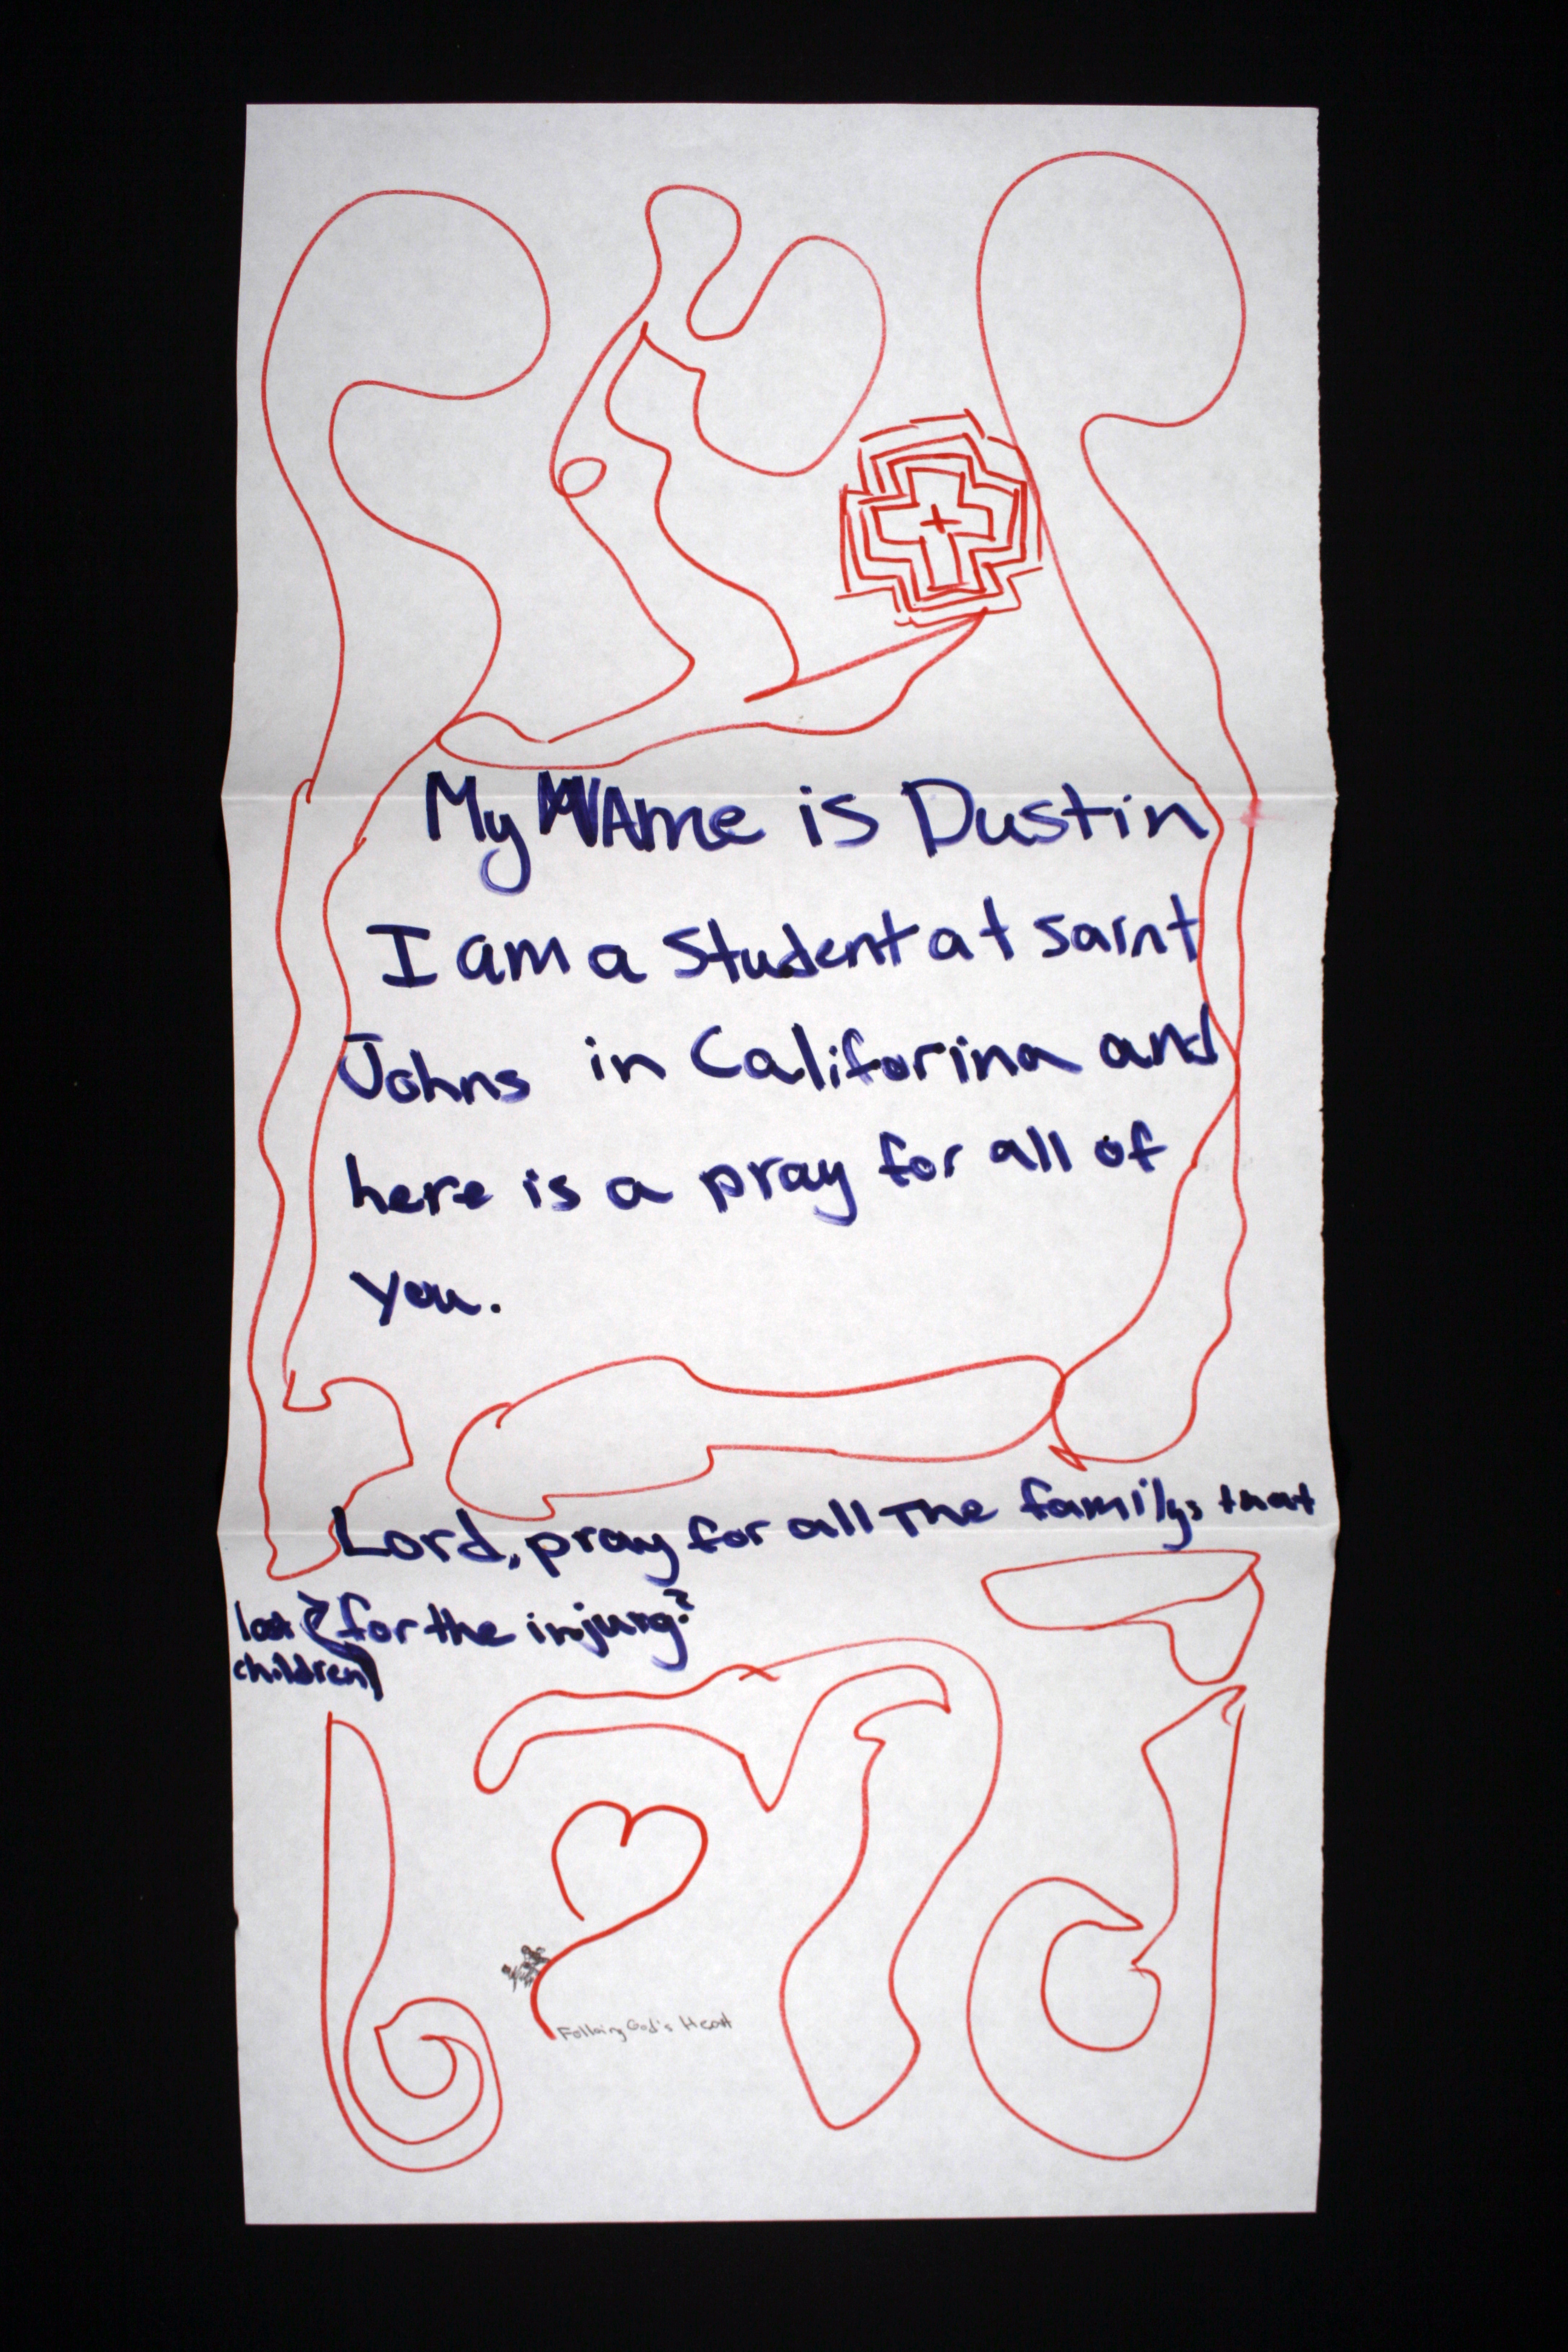 My NAme is Dustin
I am a Student at saint
Johns in Califorina and
here is a pray for all of
you.
Lord, pray for all The familys that
lost & for the injurg?
children
Follwing God's Heart